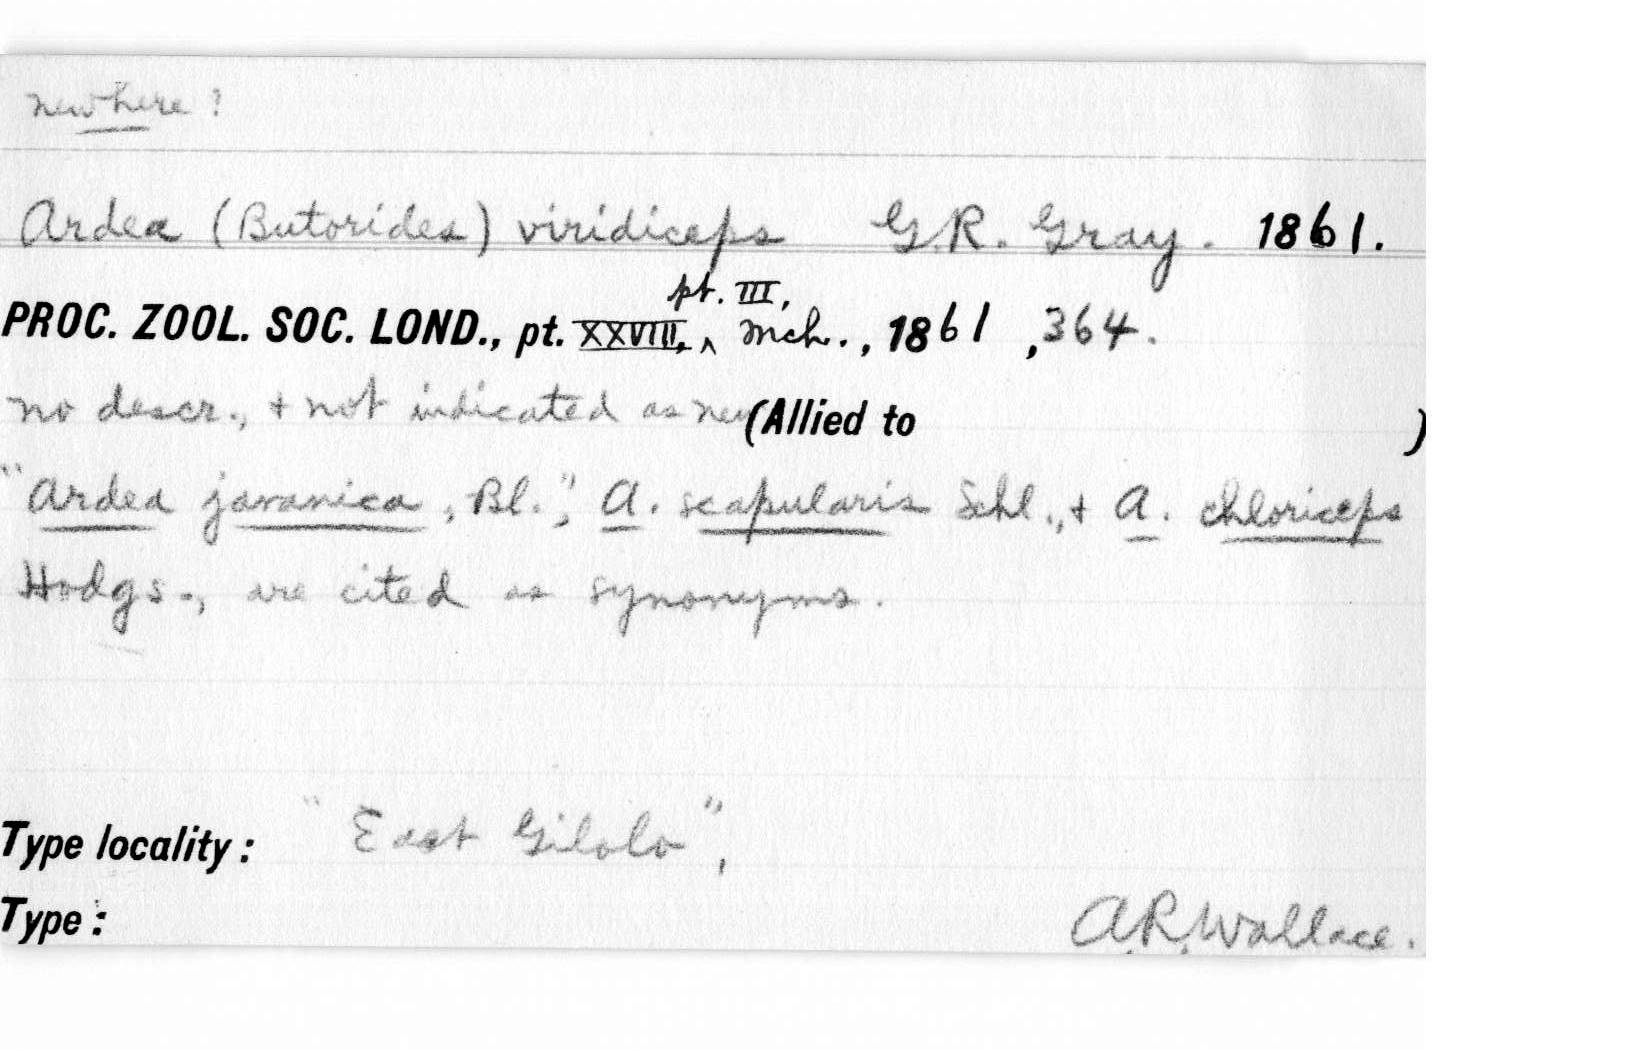 new here ?
Ardea (Butorides) viridiceps G.R. Gray. 1861.
pt. III,
PROC. ZOOL. SOC. LOND., pt. XXVIII, ^ Mch., 1861 , 364.
no descr., + not indicated as new (Allied to )
"Ardea javanica, Bl.", A. scapularis Schl., + A. chloriceps
Hodgs., are cited as synonyms.
Type locality: "East Gilolo",
Type: A.R. Wallace.